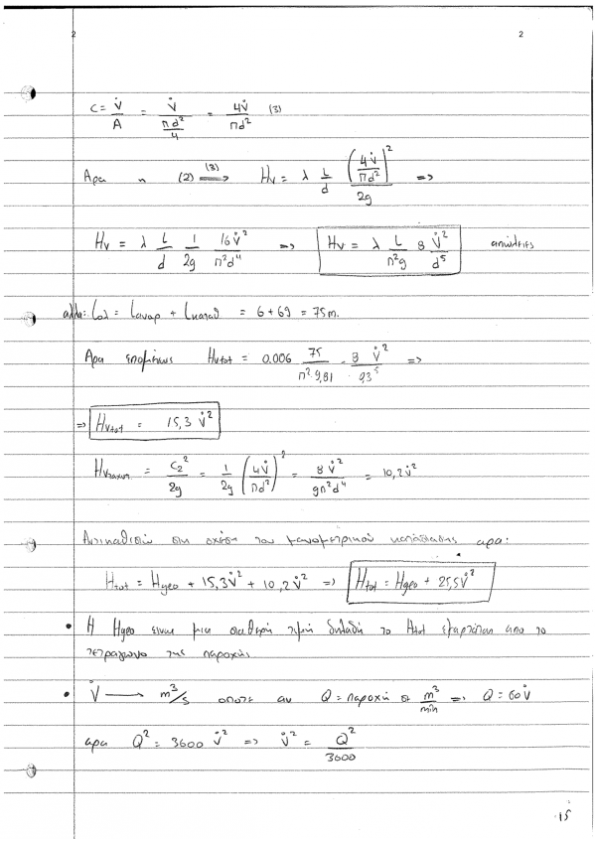 2 2
C = V̇/A = V̇/(πd²/4) = 4V̇/πd² (3)
Άρα η (2) =(3)=> Hv = λ L/d (4V̇/πd²)²/2g =>
Hv = λ L/d 1/2g 16V̇²/π²d⁴ => Hv = λ L/π²g 8 V̇²/d⁵ απώλειες
αλλά: Lολ = Lαναρ + Lκαταθ = 6 + 69 = 75m.
Άρα επομένως Hvtot = 0.006 75/π² 9,81 · 8 V̇²/0,3⁵ =>
=> Hvtot = 15,3 V̇²
= C₂²/2g = 1/2g (4V̇/πd²)² = 8V̇²/gπ²d⁴ = 10,2V̇²
Αντικαθιστώ στη σχέση του μανομετρικού κατάθλιψης άρα:
Htot = Hgeo + 15,3V̇² + 10,2V̇² => Htot = Hgeo + 25,5V̇²
• Η Hgeo είναι μια σταθερή τιμή δηλαδή το Htot εξαρτάται από το
τετράγωνο της παροχής.
• V̇ → m³/s οπότε αν Q = παροχή σε m³/min => Q = 60V̇
άρα Q² = 3600 V̇² => V̇² = Q²/3600
15